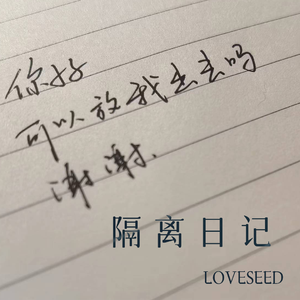 你好
可以放我出去吗
谢谢.
隔离日记
LOVESEED